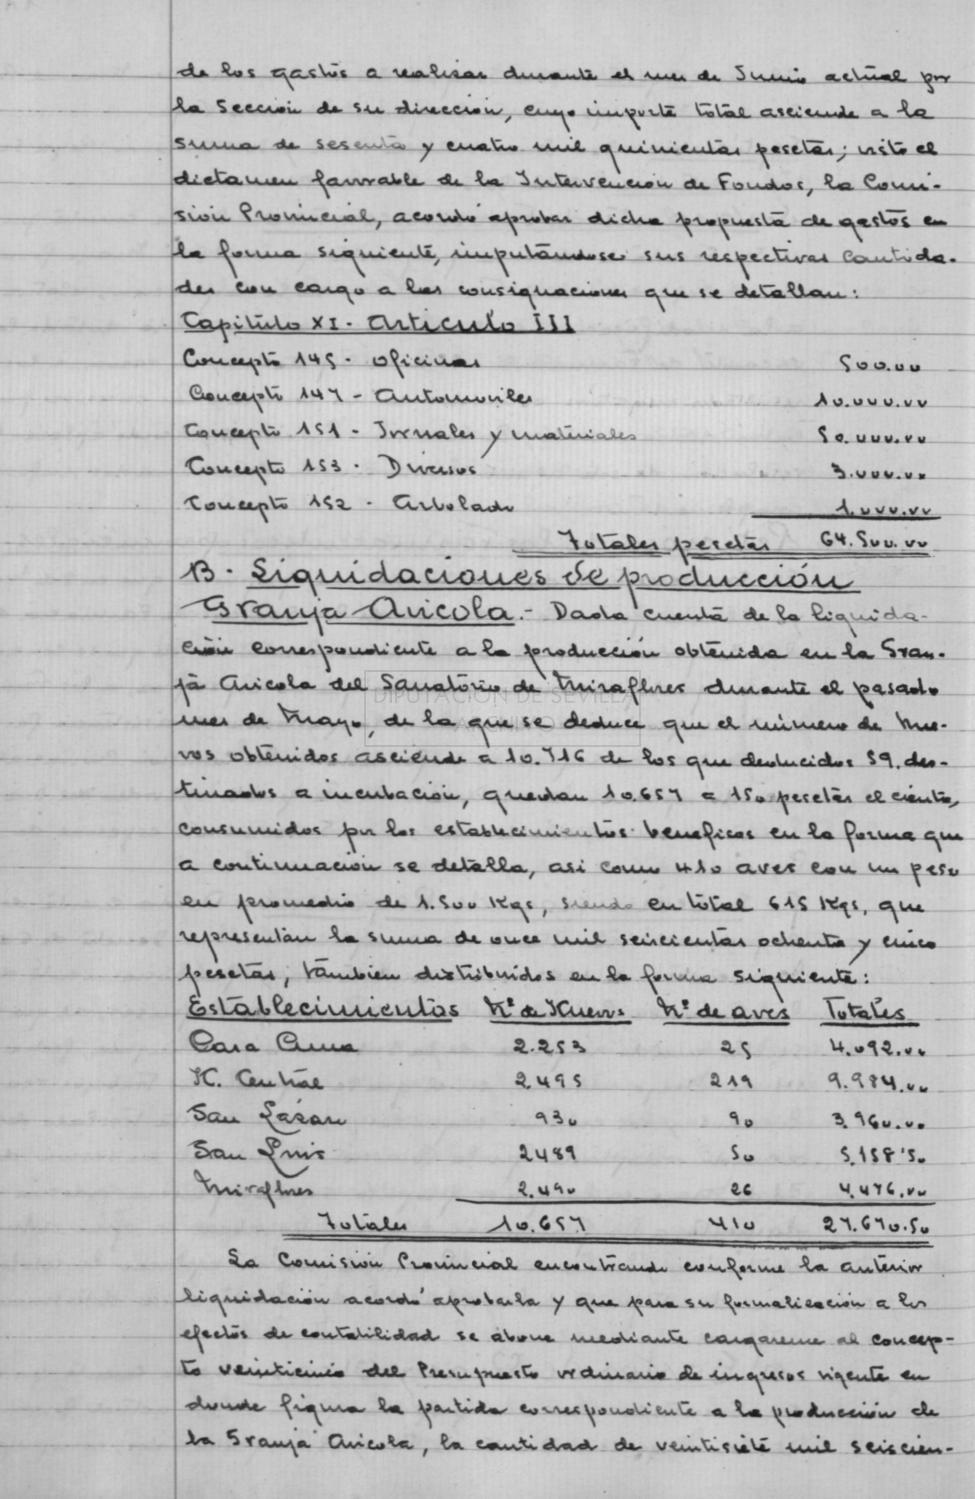 de los gastos a realizar durante el mes de Junio actual por
la Sección de su dirección, cuyo importe total asciende a la
suma de sesenta y cuatro mil quinientas pesetas; visto el
dictamen favorable de la Intervención de Fondos, la Comi-
sión Provincial, acordó aprobar dicha propuesta de gastos en
la forma siguiente, imputándose sus respectivas cantida-
des con cargo a las consignaciones que se detallan:
Capítulo XI. Artículo III
Concepto 145. Oficinas 500.00
Concepto 147 - Automoviles 10.000.00
Concepto 151 - Jornales y materiales 50.000.00
Concepto 153. Diversos 3.000.00
Concepto 152 - Arbolado 1.000.00
Totales pesetas 64.500.00
B. Liquidaciones de producción
Granja Avicola.- Dada cuenta de la liquida-
ción correspondiente a la producción obtenida en la Gran-
ja Avicola del Sanatorio de Miraflores durante el pasado
DIPUTACIÓN DE SEVILLA
mes de Mayo, de la que se deduce que el número de hue-
vos obtenidos asciende a 10.716 de los que deducidos 59 des-
tinados a incubación, quedan 10.657 a 150 pesetas el ciento,
consumidos por los establecimientos beneficos en la forma que
a continuación se detalla, asi como 410 aves con un peso
en promedio de 1.500 Kgs, siendo en total 615 Kgs, que
representan la suma de once mil seiscientas ochenta y cinco
pesetas, tambien distribuidos en la forma siguiente:
Establecimientos Nº de Huevos Nº de aves Totales
Casa Cuna 2.253 25 4.092.00
H. Central 2.495 219 9.984.00
San Lázaro 930 90 3.960.00
San Luis 2489 50 5.158'50
Miraflores 2.490 26 4.476.00
Totales 10.657 410 27.670.50
La Comisión Provincial encontrando conforme la anterior
liquidación acordó aprobarla y que para su formalización a los
efectos de contabilidad se abone mediante cargareme al concep-
to veinticinco del Presupuesto ordinario de ingresos vigente en
donde figura la partida correspondiente a la producción de
la Granja Avicola, la cantidad de veintisiete mil seiscien-